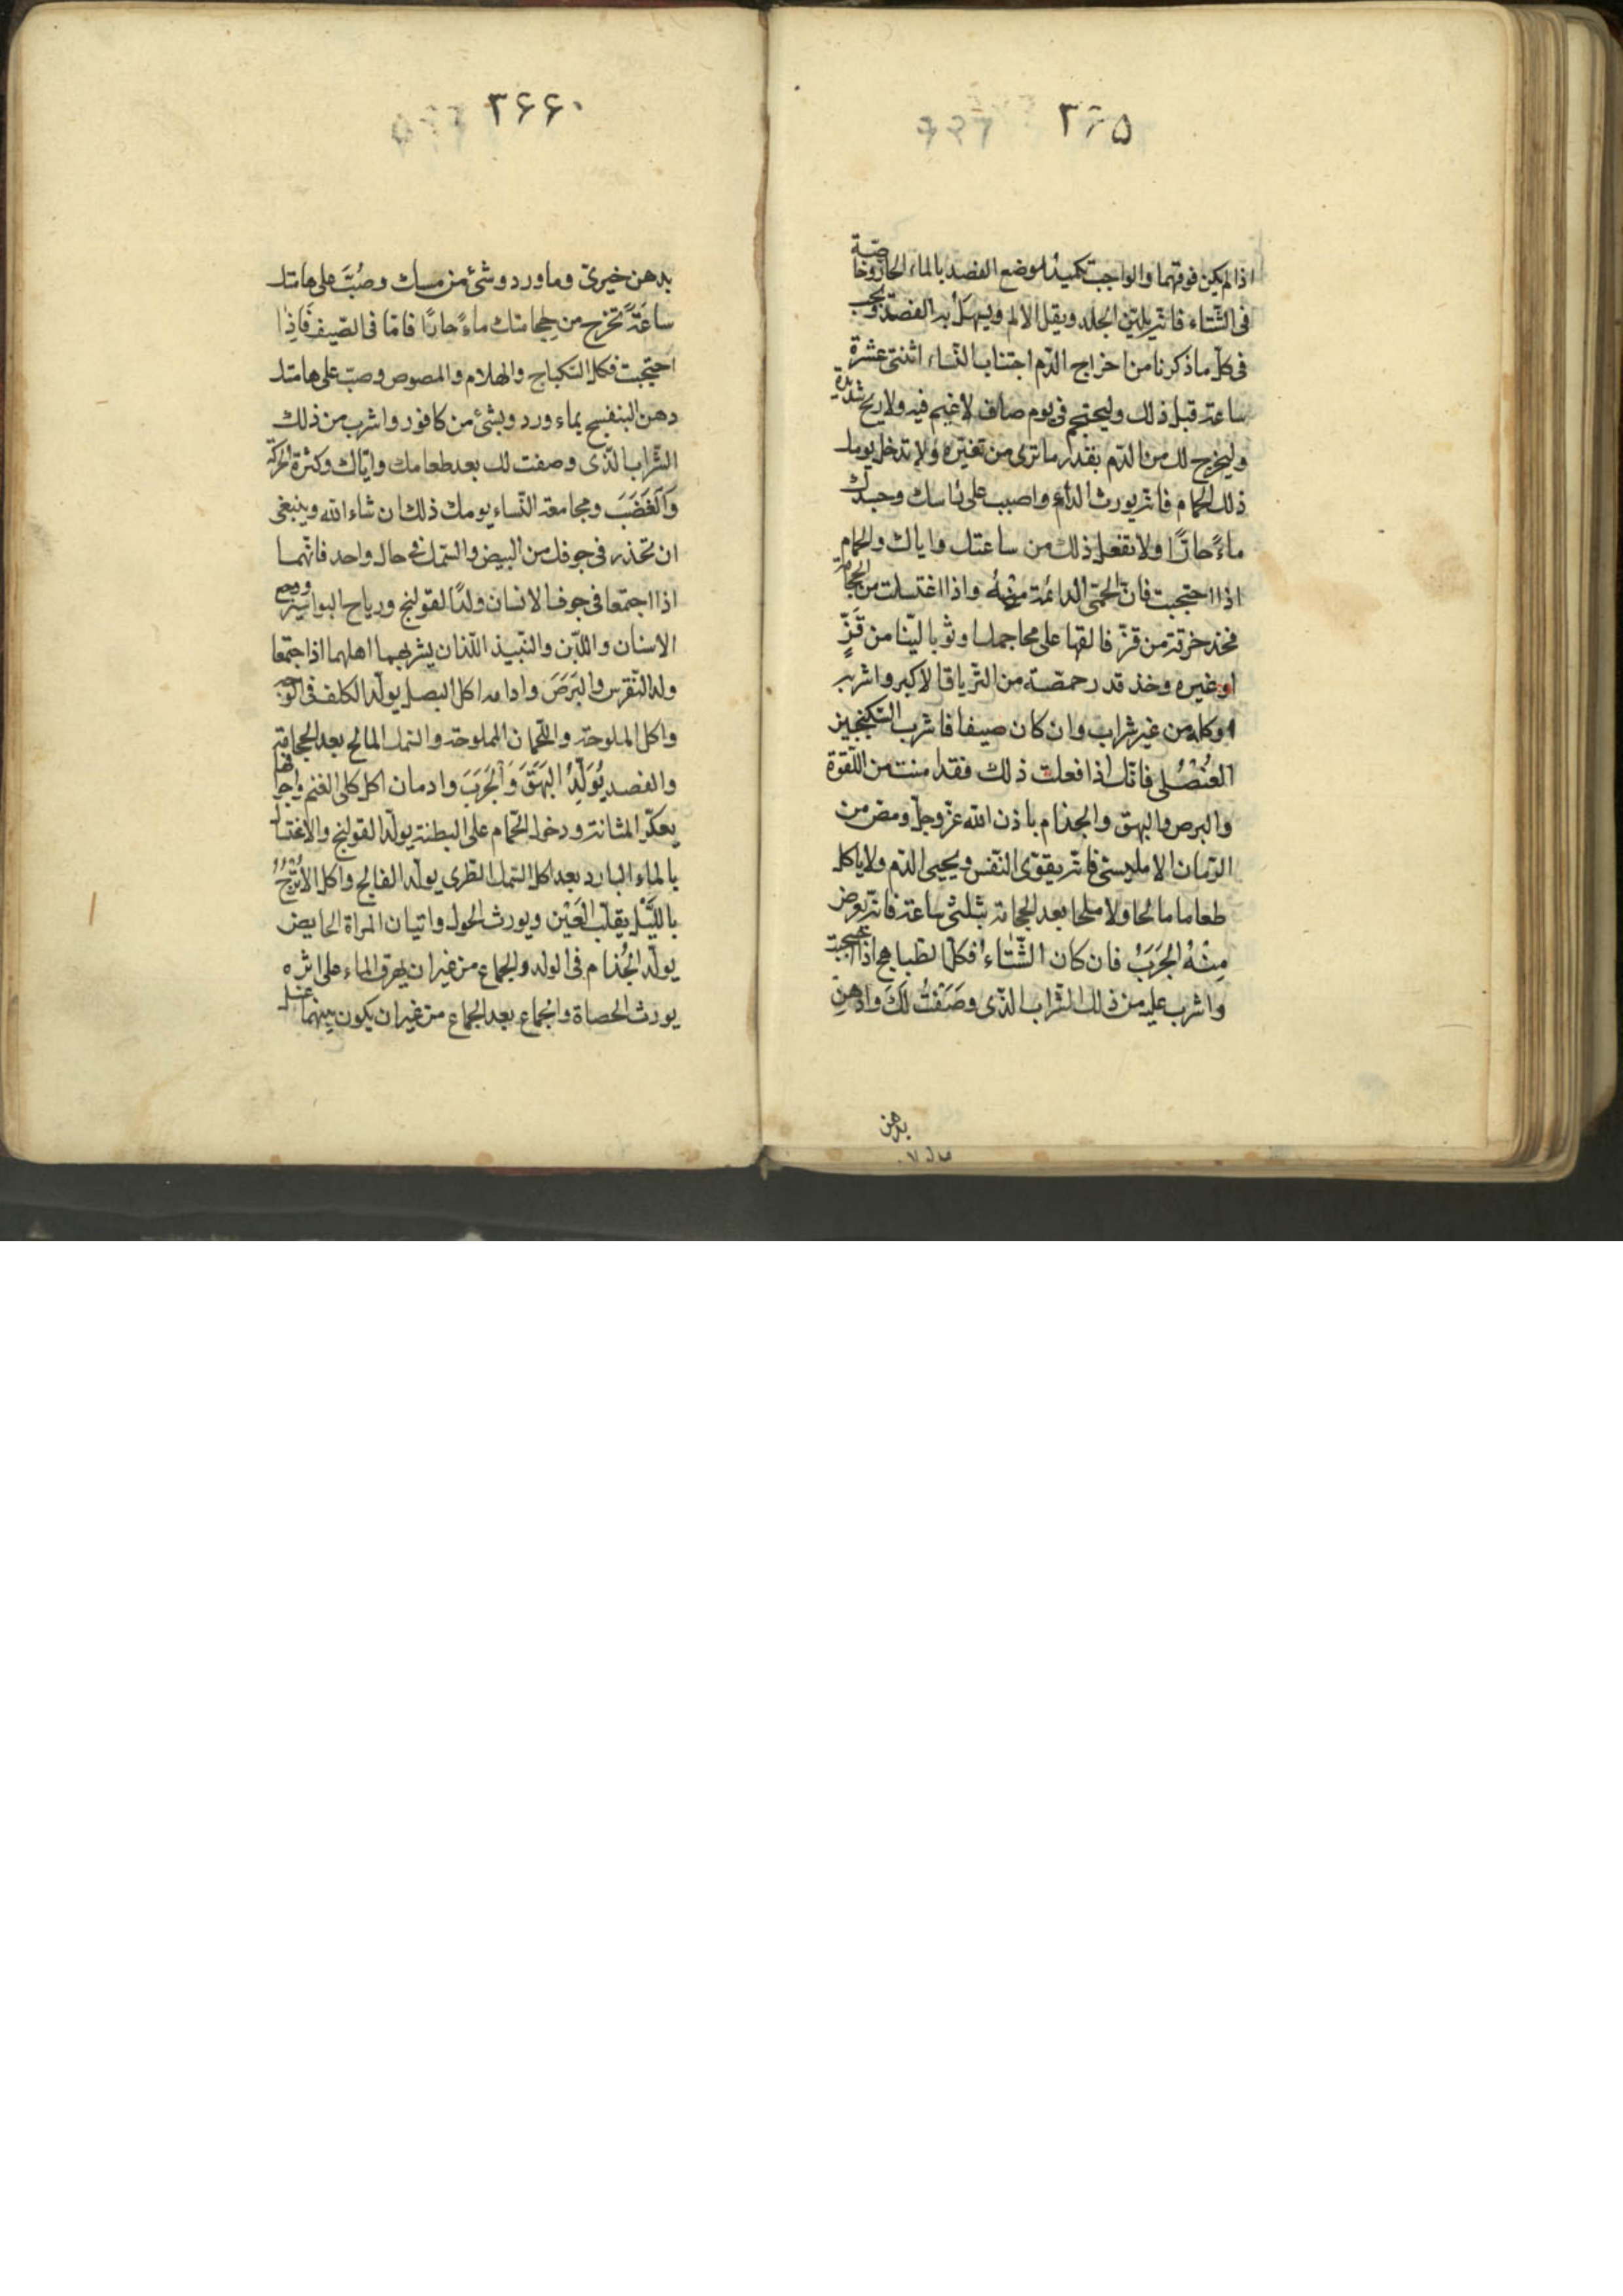 ٣٦۵
اذا لم يكن فوقهما والواجب تكميد موضع الفصد بالماء الحار وخاصّة
فى الشّتاء فانّه يليّن الجلد ويقل الالم ويسهل به الفصد ويجب
فى كلّ ما ذكرنا من اخراج الدّم اجتناب النّساء اثنتى عشرة
ساعة قبل ذلك وليحتجم فى يوم صاف لا غيم فيه ولا ريح شديدة
وليخرج لك من الدّم بقدر ما ترى من تغيّره ولا تدخل يومك
ذلك الحمام فانّه يورث الداء واصبب على راسك وجسدك
ماءً حارّا ولا تفعل ذلك من ساعتك واياك والحمام
اذا احتجمت فانّ الحمّى الدائمة منه واذا اغتسلت من الحجامة
فخذ خرقة من قزّ فالقها على محاجمك او ثوبا ليّنا من قَزٍّ
او غيره وخذ قدر حمصّة من الترياق الاكبر واشربه
او كله من غير شراب وان كان صيفا فاشرب السّكنجبين
العُنْصُلى فانّك اذا فعلت ذلك فقد امنت من اللّقوة
والبرص والبهق والجذام باذن الله عزّ وجلّ ومص من
الرّمان الامليسى فانّه يقوّى النّفس ويحيى الدّم ولا ياكل
طعاما مالحا ولا ملحا بعد الحجامة بثلثى ساعة فانّه يعرض
مِنْهُ الجَرَبُ فان كان الشّتاء فكل الطّباهج اذا احتجمت
واشرب عليه من ذلك الشّراب الّذى وصَفْتُ لَكَ وادّهِن
بدهن
٣۶۶
بدهن خيرىّ وما ورد وشئ من مسك وصُبَّ على هامتك
ساعَةً تخرج من حجامتك ماءً حارًا فامّا فى الصّيف فَاِذا
احتجمت فكل السّكباج والهلام والمصوص وصبّ على هامتك
دهن البنفسج بماء ورد وبشئ من كافور واشرب من ذلك
الشّراب الّذى وصفت لك بعد طعامك وايّاك وكثرة الحركة
وَالغَضَبَ ومجامعة النّساء يومك ذلك ان شاء الله وينبغى
ان تحذر فى جوفك من البيض والسّمك فى حال واحد فانّهما
اذا اجتمعا فى جوف الانسان ولدّا القولنج ورياح البواسير ووجع
الاسنان واللّبن والنّبيذ اللّذان يشربهما اهلهما اذا جتمعا
ولد النّقرس والبَرَصَ وادامه اكل البصل يولّد الكلف فى الوجه
واكل الملوحة واللّحمان المملوحة والسّمك المالح بعد الحجامة
والفصد يُوَلِّدُ البَهَقَ وَالجَرَبَ وادمان اكل كلى الغنم واجوافها
يعكّر المثانة ودخول الحمّام على البطنة يولّد القولنج والاغتسال
بالماء البارد بعد اكل السّمك الطّرى يولّد الفالج واكل الأُتْرُجُّ
باللَّيْل يقلّب العَيْن ويورث الحول واتيان المراة الحايض
يولّد الجُذام فى الولد والجماع من غير ان يهرق الماء على اثره
يورث الحصاة والجماع بعد الجماع من غير ان يكون بينهما غسل